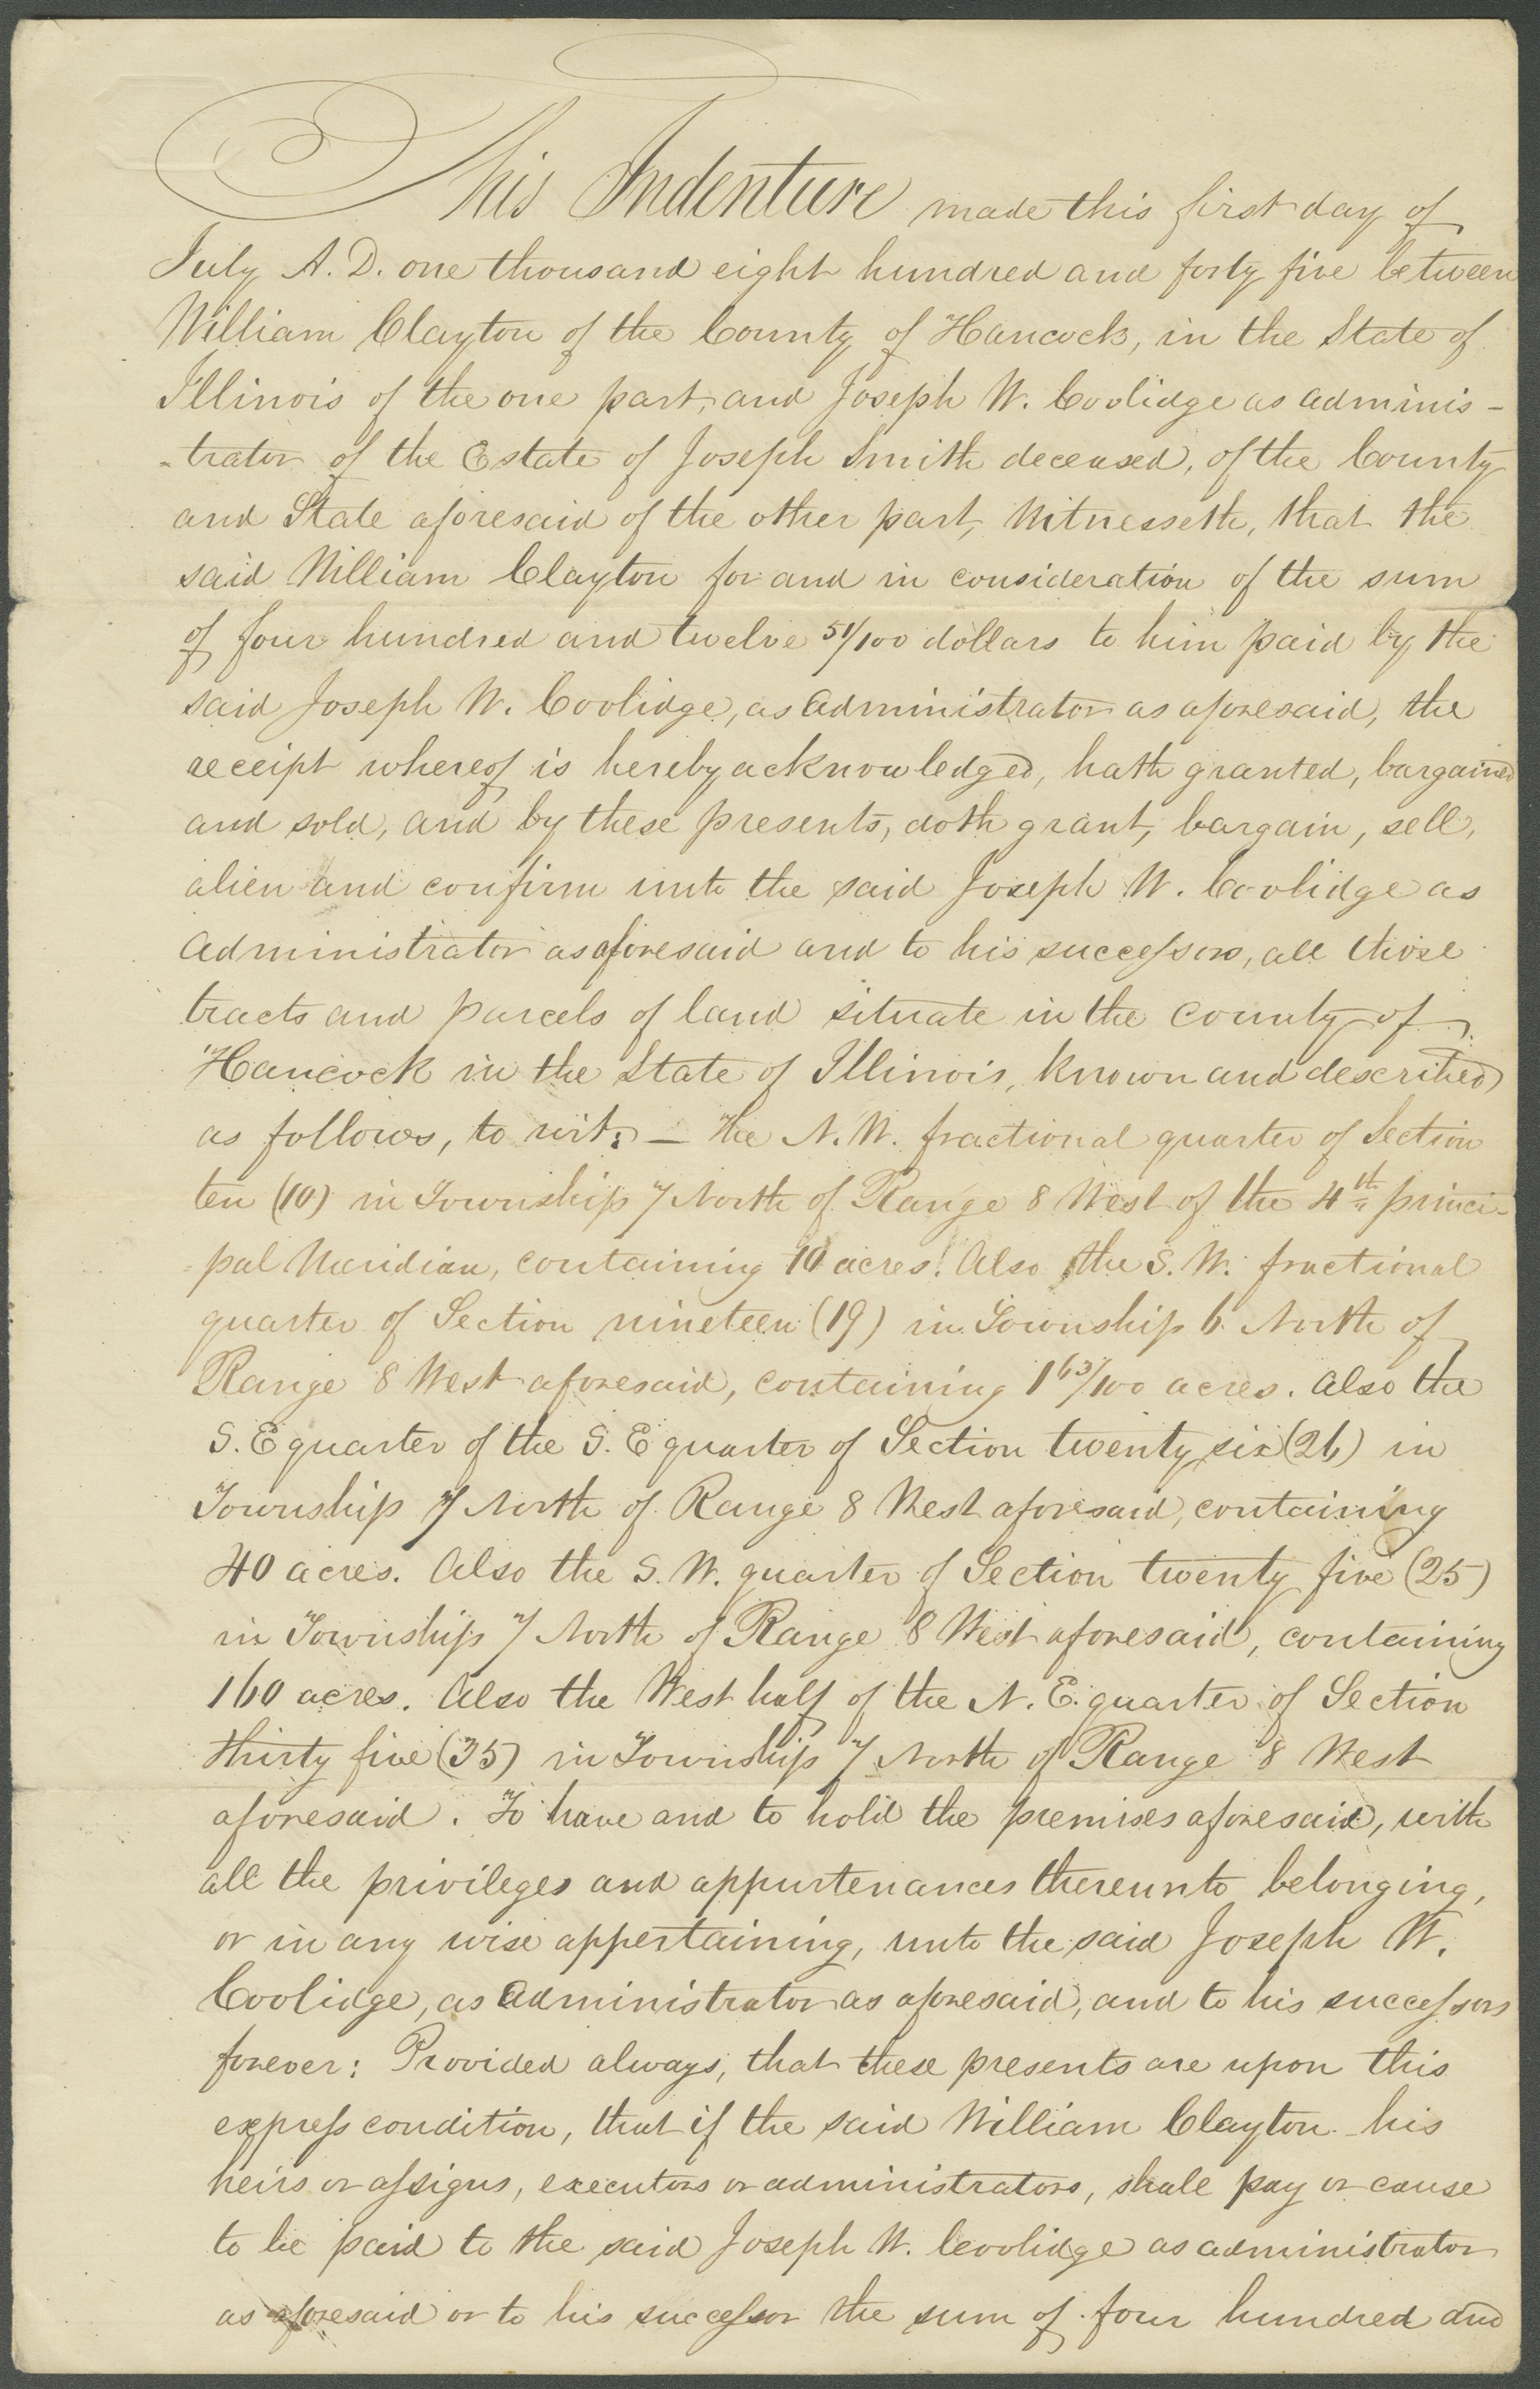 This Indenture made this first day of
July A. D. one thousand eight hundred and forty five between
William Clayton of the County of Hancock, in the State of
Illinois of the one part, and Joseph W. Coolidge as adminis-
-trator of the Estate of Joseph Smith deceased, of the County
and State aforesaid of the other part, Witnesseth, that the
said William Clayton for and in consideration of the sum
of four hundred and twelve 51/100 dollars to him paid by the
said Joseph W. Coolidge, as Administrator as aforesaid, the
receipt whereof is hereby acknowledged, hath granted, bargained
and sold, and by these presents, doth grant, bargain, sell,
alien and confirm unto the said Joseph W. Coolidge as
Administrator as aforesaid and to his successors, all those
tracts and parcels of land situate in the County of
Hancock in the State of Illinois, known and described
as follows, to wit; — The N. W. fractional quarter of Section
ten (10) in Township 7 North of Range 8 West of the 4th princi-
-pal Meridian, containing 10 acres. Also the S. W. fractional
quarter of Section nineteen (19) in Township 6 North of
Range 8 West aforesaid, containing 1 63/100 acres. Also the
S. E quarter of the S. E quarter of Section twenty six (26) in
Township 7 North of Range 8 West aforesaid, containing
40 acres. Also the S. W. quarter of Section twenty five (25)
in Township 7 North of Range 8 West aforesaid, containing
160 acres. Also the West half of the N. E. quarter of Section
thirty five (35) in Township 7 North of Range 8 West
aforesaid. To have and to hold the premises aforesaid, with
all the privileges and appurtenances thereunto belonging,
or in any wise appertaining, unto the said Joseph W.
Coolidge, as Administrator as aforesaid, and to his successors
forever: Provided always, that these presents are upon this
express condition, that if the said William Clayton his
heirs or assigns, executors or administrators, shall pay or cause
to be paid to the said Joseph W. Coolidge as administrator
as aforesaid or to his successor the sum of four hundred and